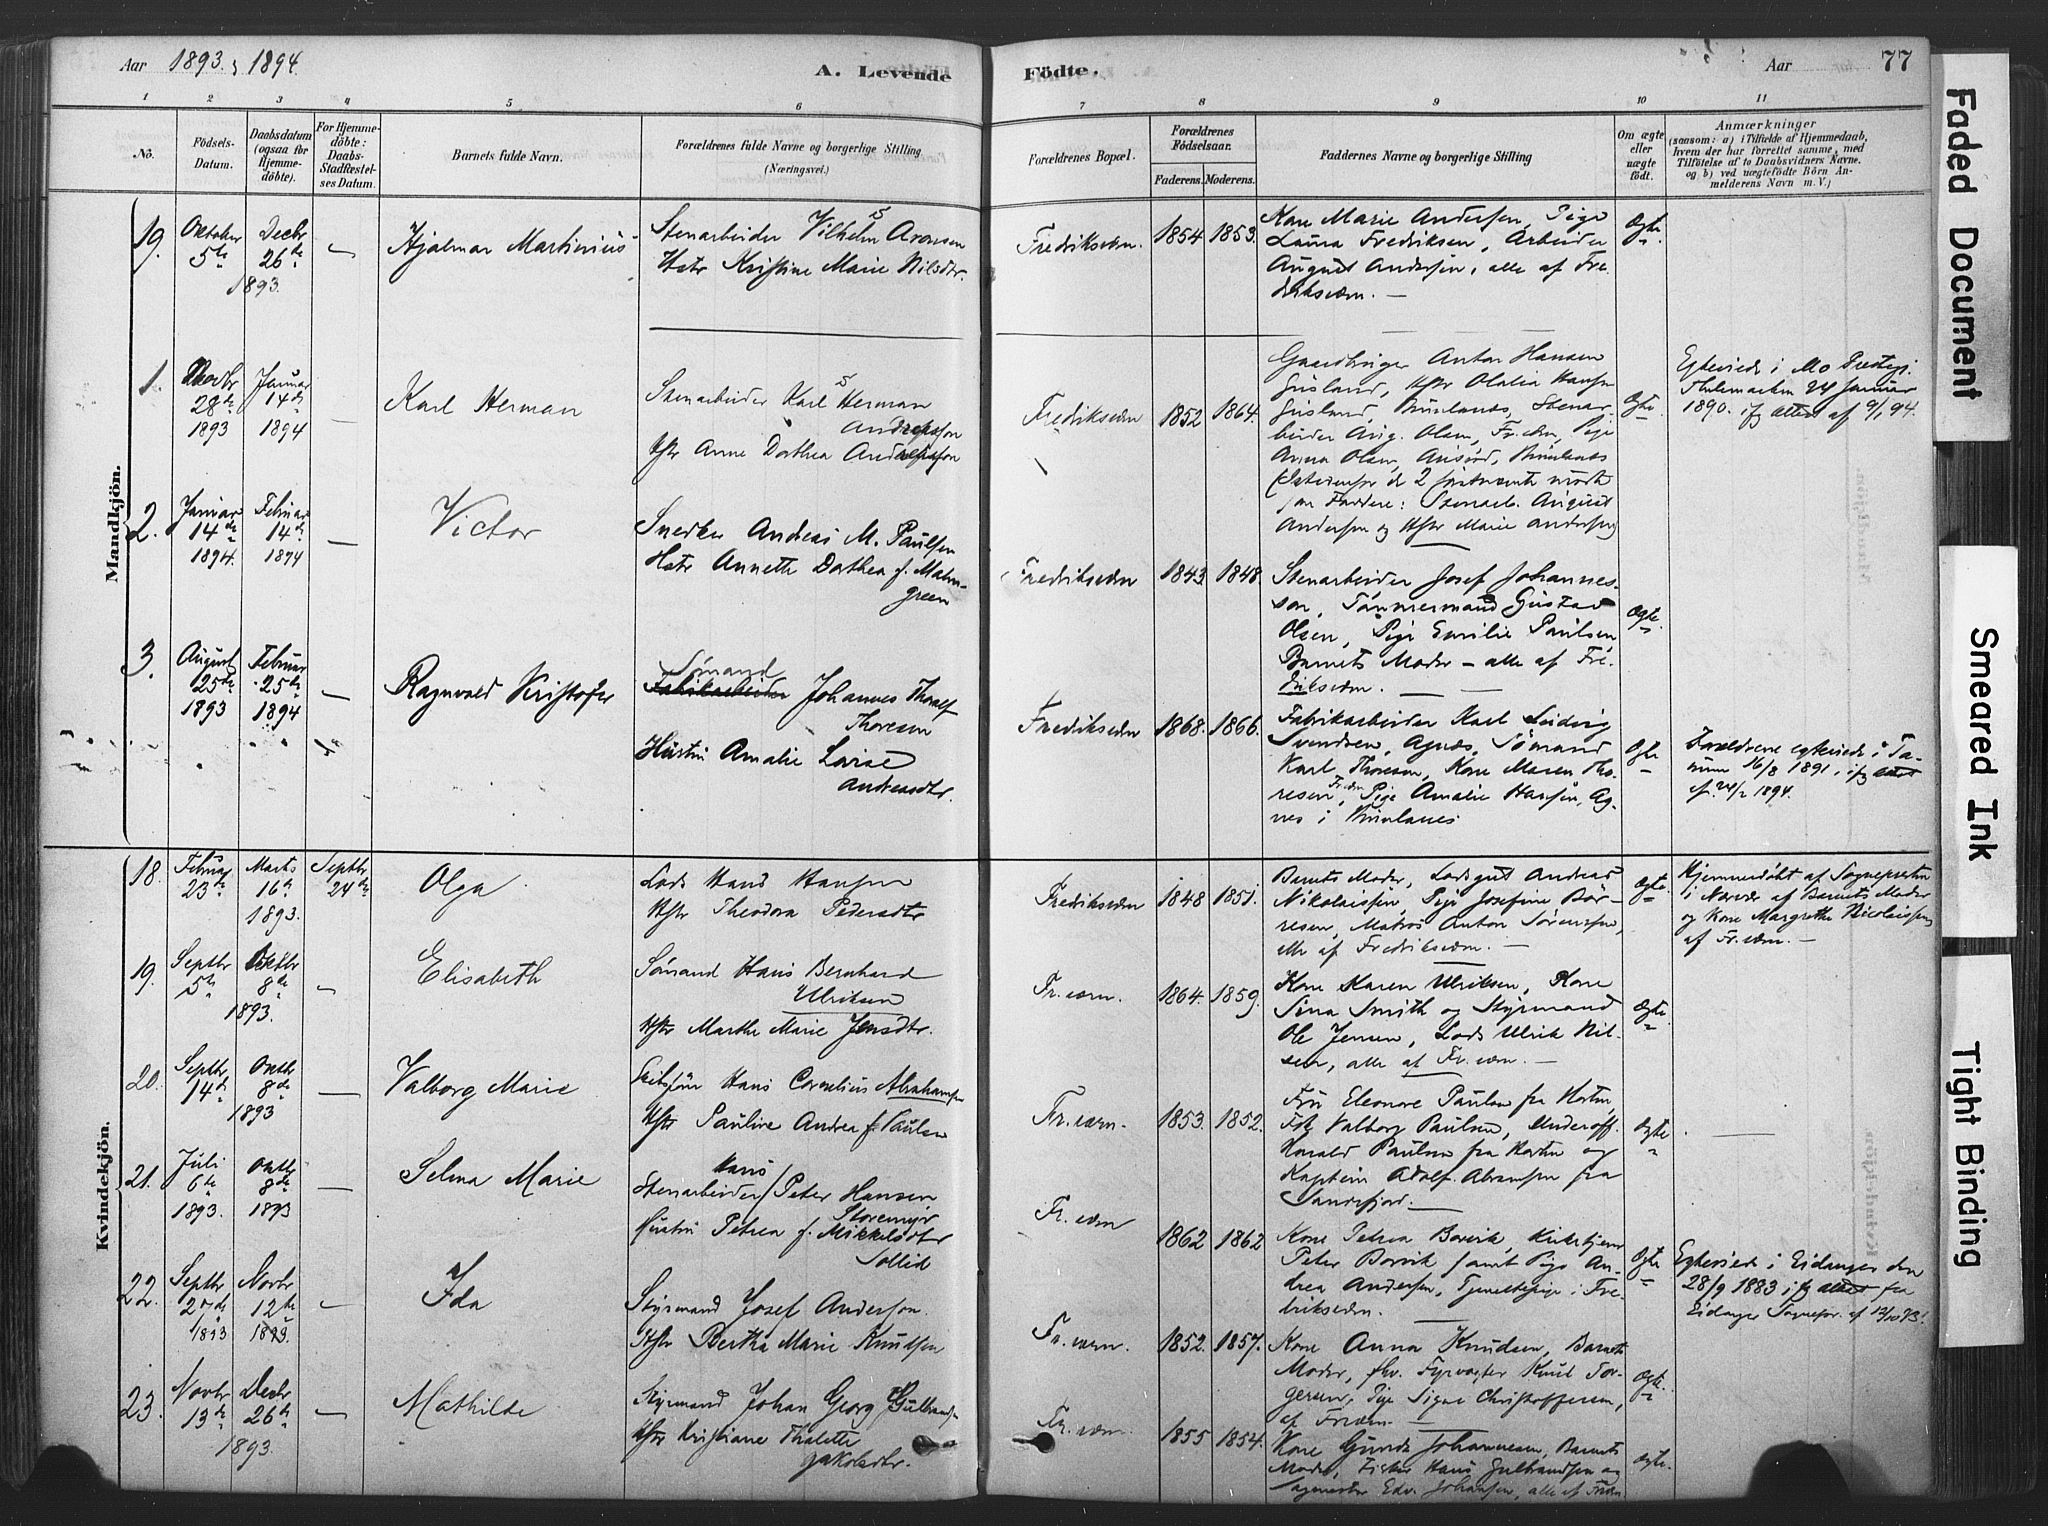 Aar 1893 & 1894.
A. Levende Födte.
Aar
77
1 2 3 4 5 6 7 8 9 10 11
No.
Födsels-Datum.
Daabsdatum (ogsaa for Hjemme-döbte).
For Hjemme-döbte: Daabs-Stadfæstel-ses Datum.
Barnets fulde Navn.
Forældrenes fulde Navne og borgerlige Stilling (Næringsvei.)
Forældrenes Bopæl.
Forældrenes Födselsaar.
Faderens. Moderens.
Faddernes Navne og borgerlige Stilling
Om ægte eller uægte födt.
Anmærkninger
(saasom: a) i Tilfælde af Hjemmedaab, hvem der har forrettet samme, med Tilföielse af to Daabsvidners Navne. og b) ved uægtefödte Börn An-melderens Navn m. V.)
Mandkjön.
19. Oktober 5te Decbr 26de 1893.
—
Hjalmar Martinius
Stenarbeider Vilhelm Aronsen
Hstr Kristine Marie Nilsdtr.
Fredriksværn.
1854 1853.
Kone Marie Andersen, Pige
Laura Fredriksen, Arbeider
August Andersen, alle af Fre-
driksværn. —
Ægte.
1. Novbr 28de 1893 Januar 14de 1894
—
Karl Herman
Stenarbeider Karl Herman
Andersson
Hstr Anne Dorthea Andersson
Fredriksværn
1852 1864.
Gaardbruger Anton Hansen
Gusland, Hstr Olalia Hansen
Gusland, Brunlanæs, Stenar-
beider Aug. Olsen, Fr.værn, Pige
Anna Olsen,
August
Andersen og Hstr Marie Andersen)
Ægte.
Egteviede i Mo Prestegj.
Thelemarken 24 Januar
1890. jfr attest af 9/1 94.
2. Januar 14de 1894. Februar 14de 1894
—
Victor
Snedker Andreas M. Paulsen
Hstr Annette Dorthea f. Malm-
green
Fredriksværn
1843 1848
Stenarbeider Josef Johannes-
son, Tømmermand Gustav
Olsen, Pige Emilie Paulsen
Barnets Moder — alle af Fre-
driksværn. —
Ægte.
3. August 25de 1893 Februar 25de 1894
—
Ragnvald Kristofer
Sømand
Fabrikarbeider Johannes Thoralf
Thoresen
Hustru Amalie Lovise
Andreasdtr.
Fredriksværn
1868. 1866.
Fabrikarbeider Karl Ludvig
Svendsen, Agnæs, Sømand
Karl Thoresen, Kone Maren Tho-
resen Fr.værn, Pige Amalie Hansen, Ag-
næs i Brunlanes
Ægte
—
Forældrene egteviede i Ta-
num 16/8 1891, jfr attest
af 24/2 1894.
Kvindekjön.
18. Februar 23de Marts 16de 1893. Septbr 24de
Olga
Lods Hans Hansen
Hstr Theodora Pedersdtr
Fredriksværn
1848 1851.
Barnets Moder, Lodsgut Andreas
Nikolaissen, Pige Josefine Bör-
resen, Matros Anton Sørensen,
alle af Fredriksværn. —
Ægte.
Hjemmedøbt af Sognepresten
i Nærvær af Barnets Moder
og Kone Margrethe Nicolaissen
af Fr.værn. —
19. Septbr 5te Oktbr 8de 1893.
—
Elisabeth
Sømand Hans Bernhard
Ulriksen
Hstr Marthe Marie Jensdtr.
Fr.værn.
1864. 1859.
Kone Karen Ulriksen, Kone
Sina Smith og Styrmand
Ole Jensen, Lods Ulrik Nil-
sen, alle af Fr.værn. —
Ægte.
20. Septbr 14de Oktbr 8de 1893
—
Valborg Marie
Hans Cornelius Abrahamsen
Hstr Pauline Andrea f. Paulsen
Fr.værn.
1853. 1852.
Fru Eleonore Paulsen fra Horten,
Frk Valborg Paulsen, Underoff.
Harald Paulsen fra Horten og
Kaptein Adolf Abramsen fra
Sandefjord. —
Ægte
—
21. Juli 6te 1893. Oktb. 8de 1893
—
Selma Marie
Hans
Stenarbeider / Peter Hansen
Storemyr
Hustru Petrea f. Mikkelsdtr
Sollid
Fr.værn
1862 1862
Kone Petrea Borvik, Kirketjener
Peter Borvik samt Pige An-
drea Andersen, Tjenestepige i Fre-
driksværn. —
Ægte
Egteviede i Eidanger den
28/9 1883 jfr attest fra
Eidanger Sognepr. af 13/10 93.
22. Septbr 27de 1893 Novbr 12te 1893.
—
Ida
Styrmand Josef Anderson.
Hstr Bertha Marie Knudsen
Fr.værn.
1852. 1857.
Kone Anna Knudsen, Barnets
Moder, fhv. Fyrvogter Knut Tor-
gersen, Pige Signe Christoffersen,
af Fr.værn —
Ægte.
23. Novbr 13de Decbr 26de 1893.
—
Mathilde
Styrmand Johan Georg Gulbrandsen
Hstr Kristiane Thalette
Jakobsdtr.
Fr.værn.
1855 1854.
Kone Gunda Johannesen, Barnets
Moder, Fisker Hans Gulbrandsen og
Edv. Johansen, alle af Fr.værn
Ægte.
Faded Document
Smeared Ink
Tight Binding